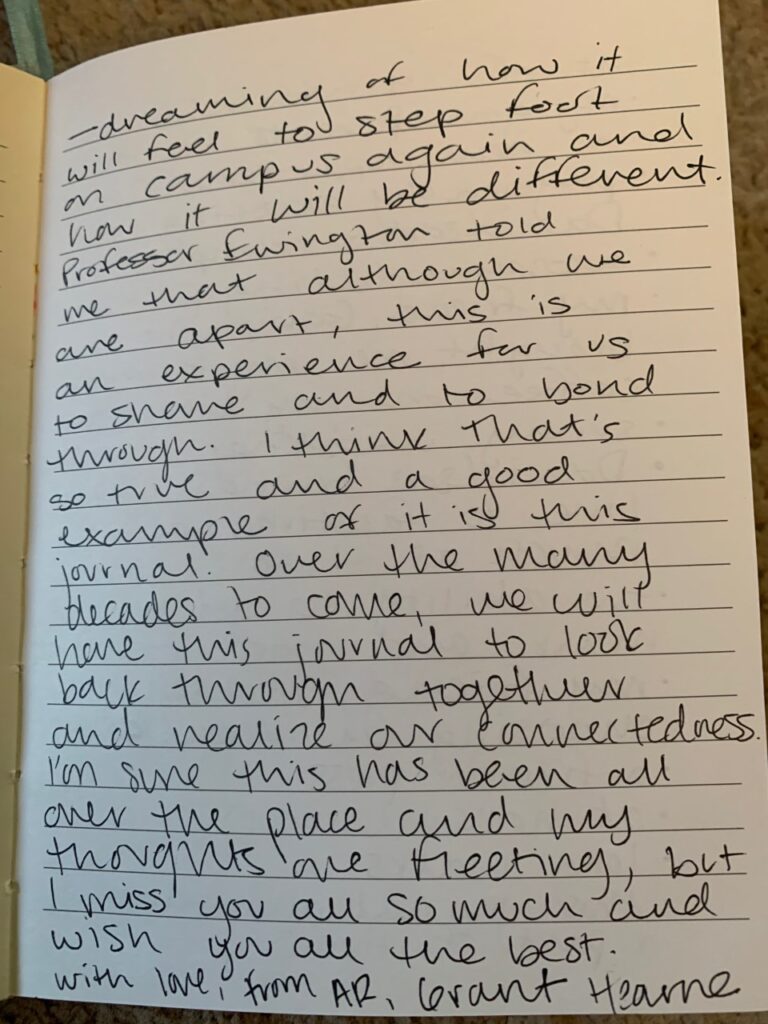 —dreaming of how it
will feel to step foot
on campus again and
how it will be different.
Professor Ewington told
me that although we
are apart, this is
an experience for us
to share and to bond
through. I think that's
so true and a good
example of it is this
journal. Over the many
decades to come, we will
have this journal to look
back through together
and realize our connectedness.
I'm sure this has been all
over the place and my
thoughts are fleeting, but
I miss you all so much and
wish you all the best.
with love, from AR, Grant Hearne